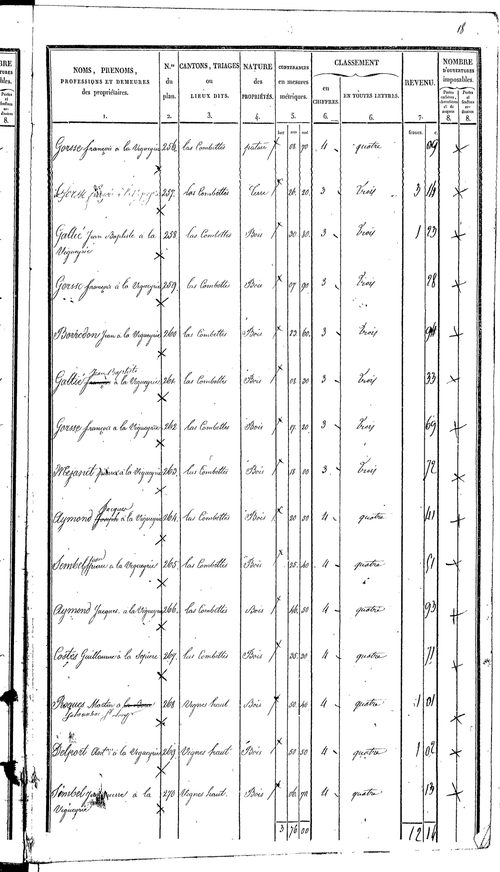 18
NOMS, PRENOMS,
PROFESSIONS ET DEMEURES
des propriétaires.
N.os
du
plan.
CANTONS, TRIAGES
ou
LIEUX DITS.
NATURE
des
PROPRIÉTÉS.
CONTENANCES
en mesures
métriques.
CLASSEMENT
en
CHIFFRES.
EN TOUTES LETTRES.
REVENU.
NOMBRE
D'OUVERTURES
imposables.
1. 2. 3. 4. 5. 6. 6. 7. 8. 8.
francs. c.
Gorsse françois a la Vigueyrie 256. las Combettes pature 08 70 4 quatre 09
257. las Combettes Terre 26 20 3 Trois 3 14
Gallié Jean Baptiste a la 258. las Combettes Bois 30 80 3 Trois 1 23
Vigueyrie
Gorsse françois à la Vigueyrie 259. las Combettes Bois 07 90 3 Trois 28
Borredon Jean a la Vigueyrie 260 las Combettes Bois 23 60 3 Trois 94
Jean Baptiste
Gallié a la Vigueyrie 261. las Combettes Bois 08 30 3 Trois 33
Gorsse françois a la Vigueyrie 262 las Combettes Bois 17 20 3 Trois 69
Mezanit a la Vigueyrie 263. las Combettes Bois 18 00 3 Trois 72
Jacques
Aymond a la Vigueyrie 264. las Combettes Bois 20 00 4 quatre 41
Sembel pierre a la Vigueyrie 265. las Combettes Bois 25 40 4 quatre 51
Aymond Jacques a la Vigueyrie 266. las Combettes Bois 46 50 4 quatre 93
Costes Guillaume a la 267. las Combettes Bois 35 30 4 quatre 71
Roques Martin a 268 Vignes haut Bois 50 40 4 quatre 1 01
Delport Ant.e à la Vigueyrie 269. Vignes haut Bois 50 50 4 quatre 1 02
Sembel pierre a la 270 Vignes haut Bois 06 70 4 quatre 13
Vigueyrie
3 76 00 12 14